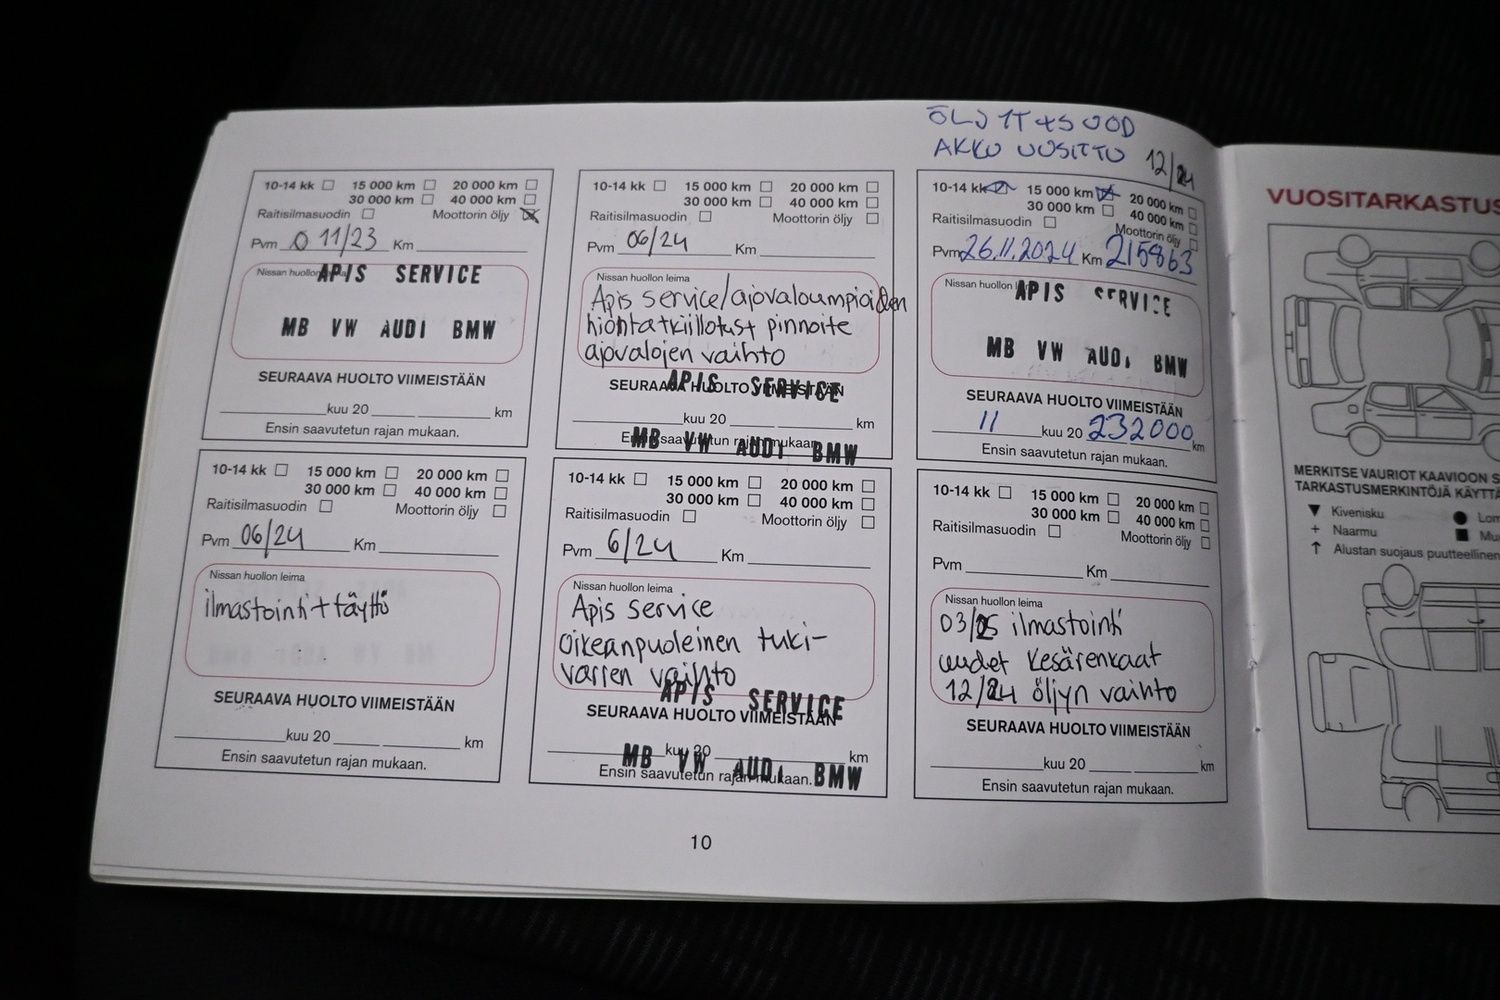 ÖLJYT+SUOD
AKKU UUSITTU 12/24
10-14 kk 15 000 km 20 000 km
30 000 km 40 000 km
Raitisilmasuodin Moottorin öljy
Pvm 11/23 Km
Nissan huollon
APIS SERVICE
MB VW AUDI BMW
SEURAAVA HUOLTO VIIMEISTÄÄN
kuu 20 km
Ensin saavutetun rajan mukaan.
10-14 kk 15 000 km 20 000 km
30 000 km 40 000 km
Raitisilmasuodin Moottorin öljy
Pvm 06/24 Km
Nissan huollon leima
Apis service/ajovaloumpioiden
hionta+kiillotust pinnoite
ajovalojen vaihto
APIS SERVICE
SEURAAVA HUOLTO VIIMEISTÄÄN
kuu 20 km
Ensin saavutetun rajan mukaan.
MB VW AUDI BMW
10-14 kk 15 000 km 20 000 km
30 000 km 40 000 km
Raitisilmasuodin Moottorin öljy
Pvm 26.11.2024 Km 215863
Nissan huollon
APIS SERVICE
MB VW AUDI BMW
SEURAAVA HUOLTO VIIMEISTÄÄN
11 kuu 20 232000 km
Ensin saavutetun rajan mukaan.
10-14 kk 15 000 km 20 000 km
30 000 km 40 000 km
Raitisilmasuodin Moottorin öljy
Pvm 06/24 Km
Nissan huollon leima
ilmastointi+täyttö
SEURAAVA HUOLTO VIIMEISTÄÄN
kuu 20 km
Ensin saavutetun rajan mukaan.
10-14 kk 15 000 km 20 000 km
30 000 km 40 000 km
Raitisilmasuodin Moottorin öljy
Pvm 6/24 Km
Nissan huollon leima
Apis service
oikeanpuoleinen tuki-
varren vaihto
APIS SERVICE
SEURAAVA HUOLTO VIIMEISTÄÄN
kuu 20 km
MB VW AUDI BMW
Ensin saavutetun rajan mukaan.
10-14 kk 15 000 km 20 000 km
30 000 km 40 000 km
Raitisilmasuodin Moottorin öljy
Pvm Km
Nissan huollon leima
03/25 ilmastointi
uudet kesärenkaat
12/24 öljyn vaihto
SEURAAVA HUOLTO VIIMEISTÄÄN
kuu 20 km
Ensin saavutetun rajan mukaan.
10
VUOSITARKASTUS
MERKITSE VAURIOT KAAVIOON S
TARKASTUSMERKINTÖJÄ KÄYTTÄ
▼ Kivenisku ● Lom
+ Naarmu ■ Mu
↑ Alustan suojaus puutteellinen